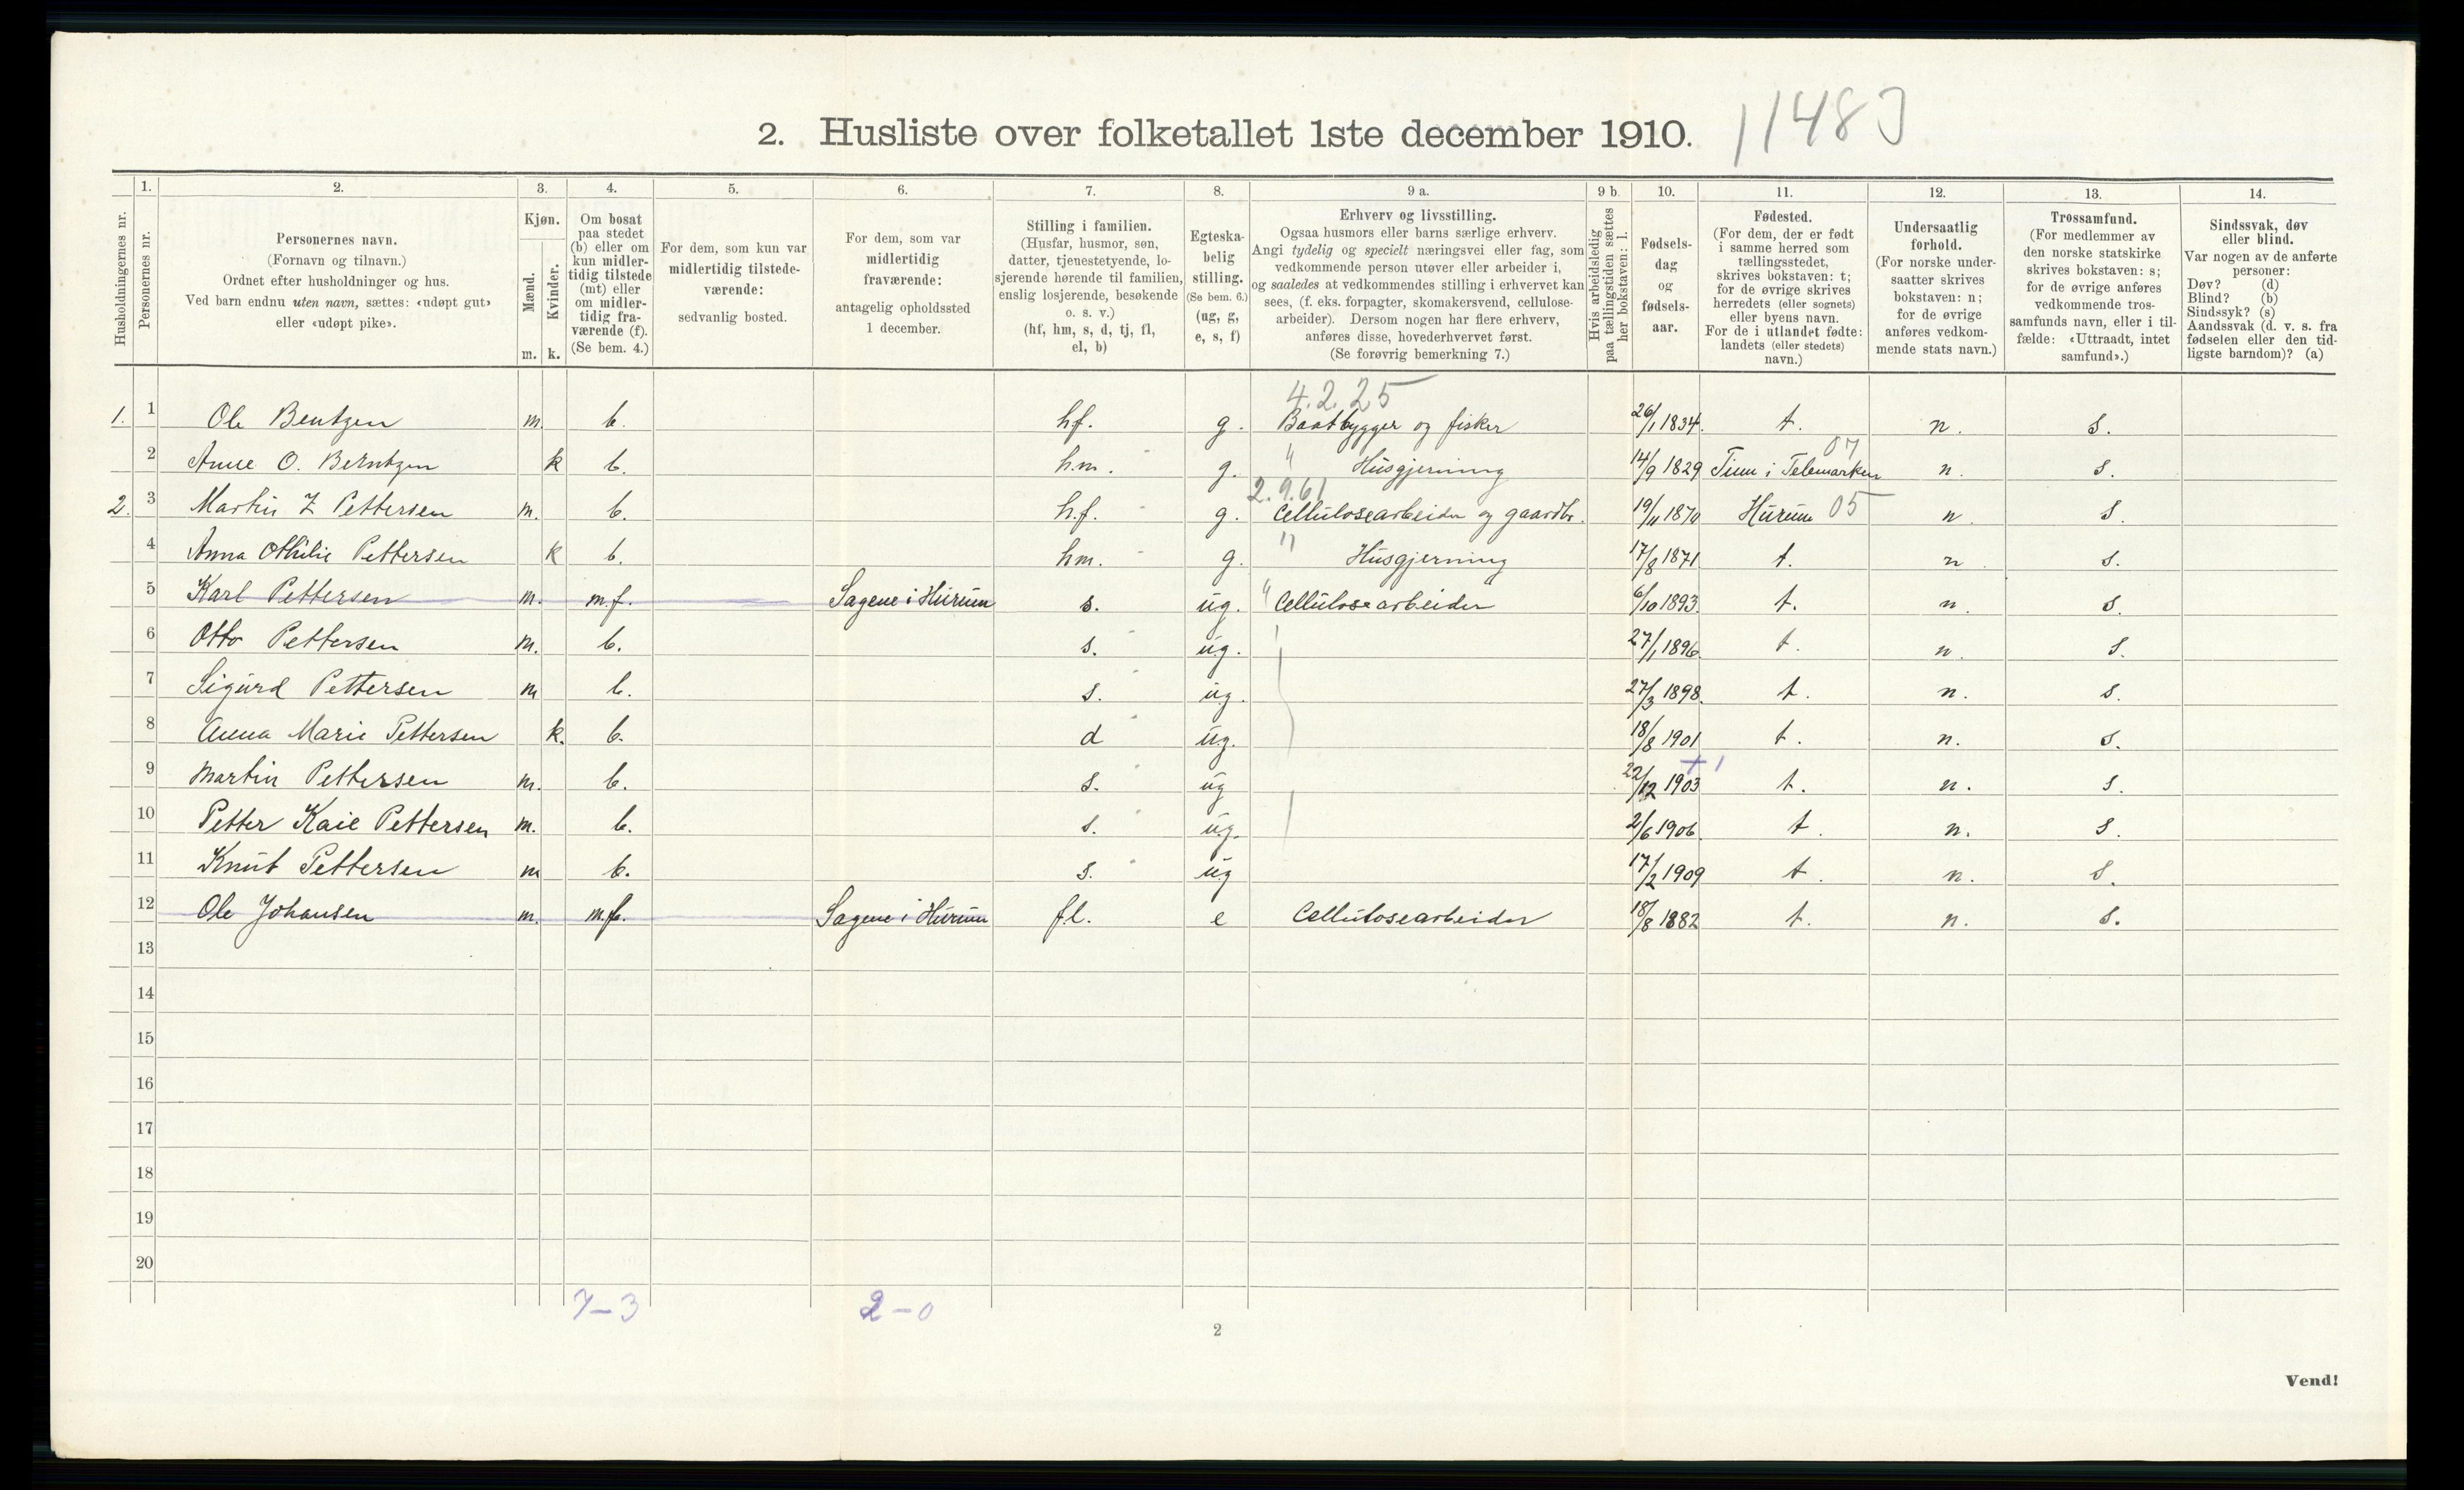 2. Husliste over folketallet 1ste december 1910. 1148
Husholdningernes nr.
1.
Personernes nr.
2.
Personernes navn.
(Fornavn og tilnavn.)
Ordnet efter husholdninger og hus.
Ved barn endnu uten navn, sættes: «udøpt gut»
eller «udøpt pike».
3.
Kjøn.
Mænd.
m.
Kvinder.
k.
4.
Om bosat
paa stedet
(b) eller om
kun midler-
tidig tilstede
(mt) eller
om midler-
tidig fra-
værende (f).
(Se bem. 4.)
5.
For dem, som kun var
midlertidig tilstede-
værende:
sedvanlig bosted.
6.
For dem, som var
midlertidig
fraværende:
antagelig opholdssted
1 december.
7.
Stilling i familien.
(Husfar, husmor, søn,
datter, tjenestetyende, lo-
sjerende hørende til familien,
enslig losjerende, besøkende
o. s. v.)
(hf, hm, s, d, tj, fl,
el, b)
8.
Egteska-
belig
stilling.
(Se bem. 6.)
(ug, g,
e, s, f)
9 a.
Erhverv og livsstilling.
Ogsaa husmors eller barns særlige erhverv.
Angi tydelig og specielt næringsvei eller fag, som
vedkommende person utøver eller arbeider i,
og saaledes at vedkommendes stilling i erhvervet kan
sees, (f. eks. forpagter, skomakersvend, cellulose-
arbeider). Dersom nogen har flere erhverv,
anføres disse, hovederhvervet først.
(Se forøvrig bemerkning 7.)
9 b.
Hvis arbeidsledig
paa tællingstiden sættes
her bokstaven: l.
10.
Fødsels-
dag
og
fødsels-
aar.
11.
Fødested.
(For dem, der er født
i samme herred som
tællingsstedet,
skrives bokstaven: t;
for de øvrige skrives
herredets (eller sognets)
eller byens navn.
For de i utlandet fødte:
landets (eller stedets)
navn.)
12.
Undersaatlig
forhold.
(For norske under-
saatter skrives
bokstaven: n;
for de øvrige
anføres vedkom-
mende stats navn.)
13.
Trossamfund.
(For medlemmer av
den norske statskirke
skrives bokstaven: s;
for de øvrige anføres
vedkommende tros-
samfunds navn, eller i til-
fælde: «Uttraadt, intet
samfund».)
14.
Sindssvak, døv
eller blind.
Var nogen av de anførte
personer:
Døv? (d)
Blind? (b)
Sindssyk? (s)
Aandssvak (d. v. s. fra
fødselen eller den tid-
ligste barndom)? (a)
4.2.25
1. 1 Ole Bentzen m. b. hf. g. Baatbygger og fisker 26/1 1834. t. n. s.
07
2 Anne O. Berntzen k b. h.m. g. " Husgjerning 14/9 1829 Tinn i Telemarken n. s.
2.9.61
2. 3 Martin Z Pettersen m. b. h.f. g. Cellulosearbeider og gaardbr. 19/11 1870 Hurum 05 n. s.
4 Anna Othilie Pettersen k b. hm. g. " Husgjerning 17/8 1871 t. n. s.
5 Karl Pettersen m. m.f. Sagene i Hurum s. ug. " Cellulosearbeider 6/10 1893. t. n. s.
6 Otto Pettersen m. b. s. ug. 27/1 1896. t. n. s.
7 Sigurd Pettersen m b. s. ug. 27/3 1898. t. n. s.
8 Anna Marie Pettersen k. b. d ug. 18/8 1901 t. n. s.
9 Martin Pettersen m. b. s. ug 22/12 1903 t. n. s.
10 Petter Kaie Pettersen m. b. s. ug. 2/6 1906. t. n. s.
11 Knut Pettersen m b. s. ug 17/2 1909 t. n. s.
12 Ole Johansen m. m.f. Sagene i Hurum f.l. e Cellulosearbeider 18/8 1882 t. n. s.
13
14
15
16
17
18
19
20
7-3 2-0
2
Vend!